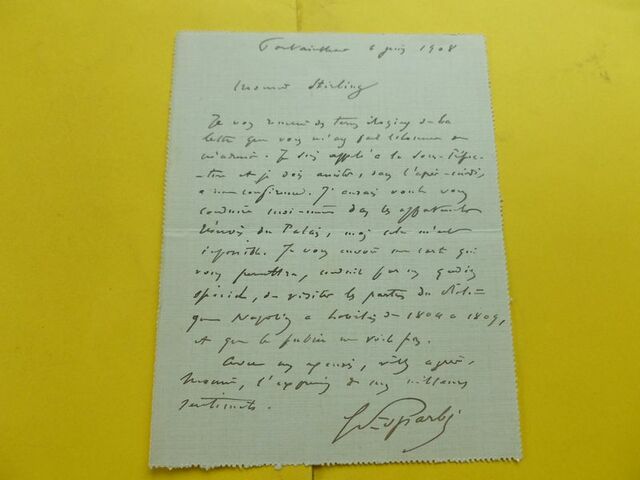 Fontainebleau 6 juin 1908
Monsieur Stirling
Je vous remercie des termes élogieux de la
lettre que vous m'avez fait l'honneur de
m'adresser. Je suis appelé à la Sous-Préfec-
ture et je dois assister, dans l'après-midi,
à une conférence. J'aurais voulu vous
conduire moi-même dans les appartements
réservés du Palais, mais cela m'est
impossible. Je vous envoie une carte qui
vous permettra, conduit par un gardien
spécial, de visiter les parties du Château
que Napoléon a habitées de 1804 à 1809,
et que le public ne voit pas.
Avec mes excuses, veuillez agréer,
Monsieur, l'expression de mes meilleurs
sentiments.
G. d'Esparbès